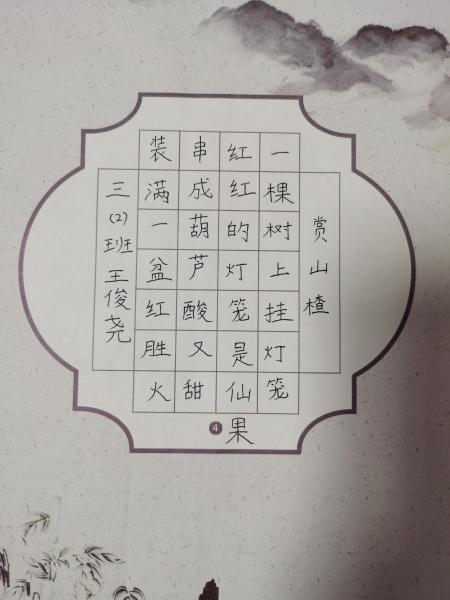 赏山楂
一棵树上挂灯笼
红红的灯笼是仙果
串成葫芦酸又甜
装满一盆红胜火
三(2)班王俊尧
4